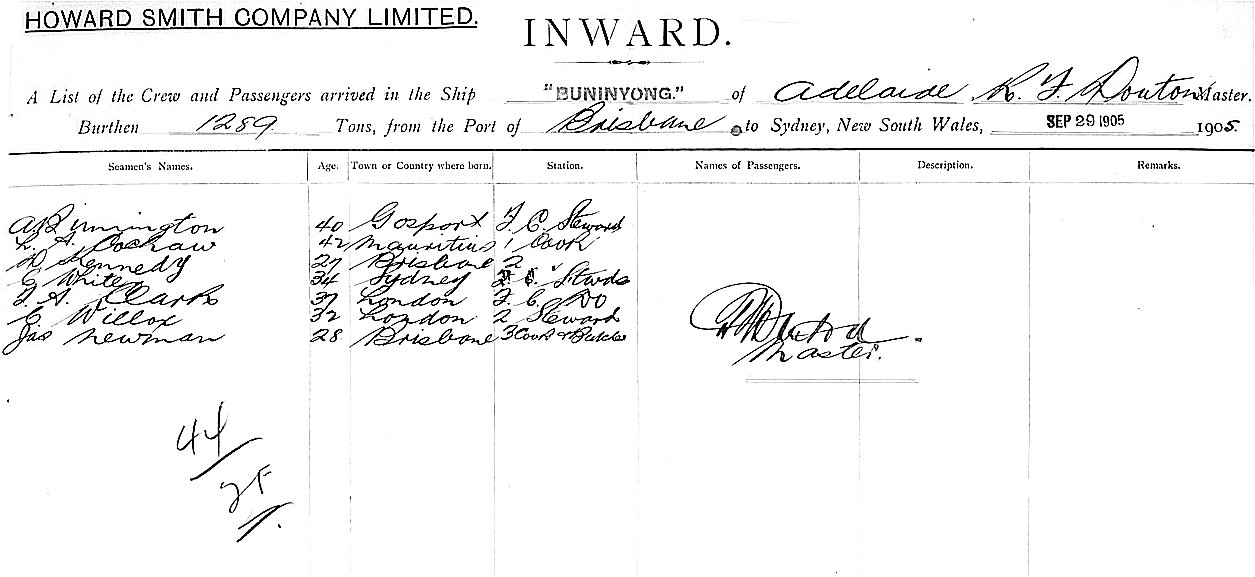 HOWARD SMITH COMPANY LIMITED.
INWARD.
A List of the Crew and Passengers arrived in the Ship "BUNINYONG." of Adelaide R. F. Douton Master.
Burthen 1289 Tons, from the Port of Brisbane to Sydney, New South Wales, SEP 29 1905 1905.
Seamen's Names. Age. Town or Country where born. Station. Names of Passengers. Description. Remarks.
40 Gosport F. C. Steward
L. A. 42 Mauritius 1 Cook
Kennedy 27 Brisbane 2 "
E White 34 Sydney C. Stwds
F. A. Clark 37 London F. C. Do
E Willox 32 London 2 Steward
Jas Newman 28 Brisbane 3 Cook & Butcher
Master.
44